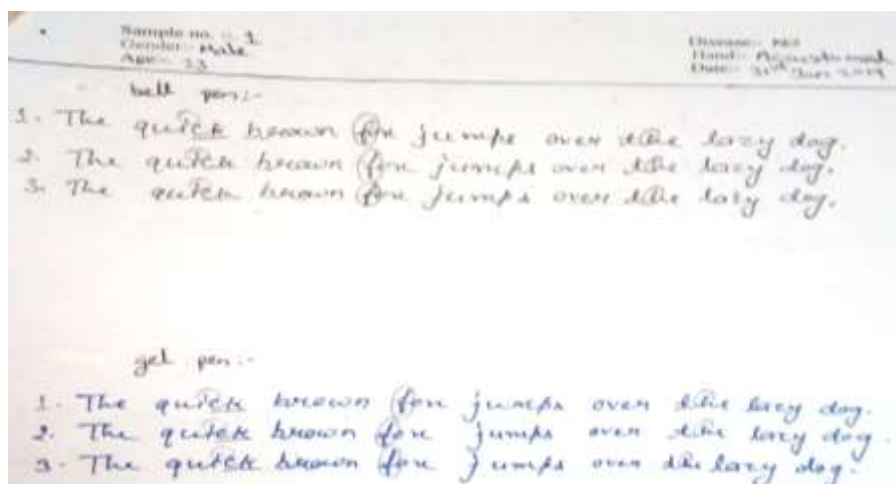 Sample no. :- 1
Gender:- Male
Age:- 23
Disease:- No
Hand:-
Date:- 31st Jan 2019
ball pen:-
1. The quick brown fox jumps over the lazy dog.
2. The quick brown fox jumps over the lazy dog.
3. The quick brown fox jumps over the lazy dog.
gel pen:-
1. The quick brown fox jumps over the lazy dog.
2. The quick brown fox jumps over the lazy dog.
3. The quick brown fox jumps over the lazy dog.